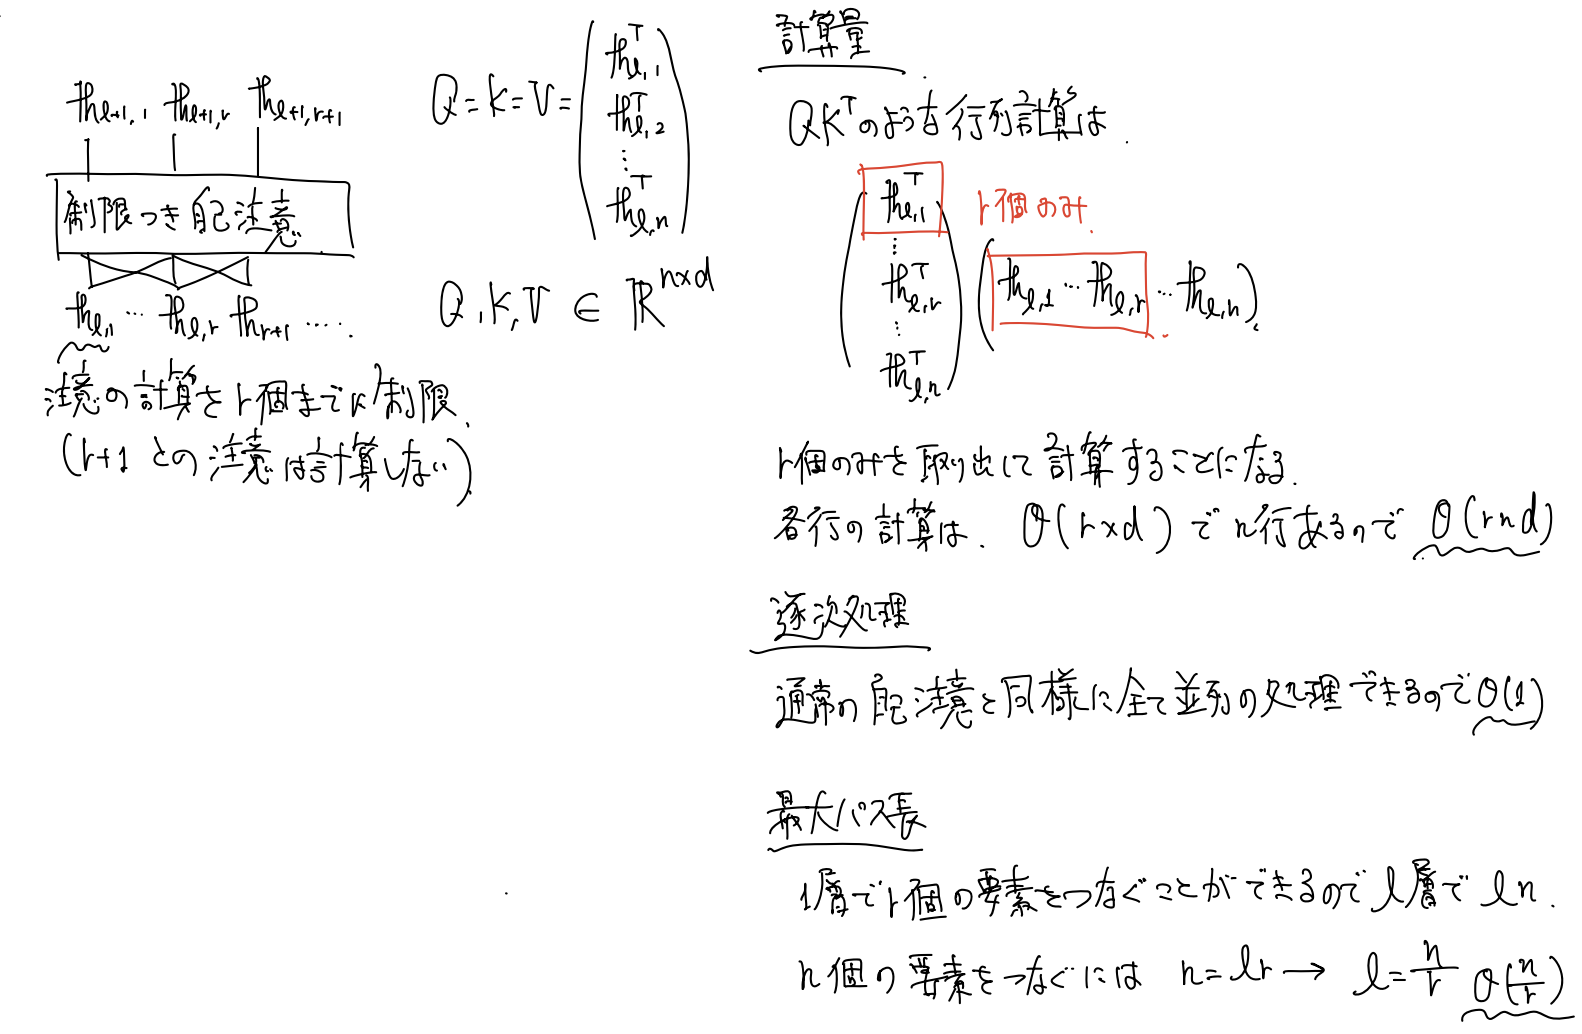 𝕙ℓ+1,1 𝕙ℓ+1,r 𝕙ℓ+1,r+1
制限つき自己注意
𝕙ℓ,1 … 𝕙ℓ,r 𝕙r+1 ….
注意の計算をr個までに制限.
(r+1 との注意は計算しない)
Q=K=V= (𝕙ℓ,1^T
𝕙ℓ,2^T
⋮
𝕙ℓ,n^T)
Q,K,V ∈ ℝ^{n×d}
計算量
QK^Tのような行列計算は
(𝕙ℓ,1^T
⋮
𝕙ℓ,r^T
⋮
𝕙ℓ,n^T)
r個のみ
(𝕙ℓ,1 … 𝕙ℓ,r … 𝕙ℓ,n)
r個のみを取り出して計算することになる.
各行の計算は. O(r×d) で n行あるので O(rnd)
逐次処理
通常の自己注意と同様に全て並列の処理できるのでO(1)
最大パス長
1層でr個の要素をつなぐことができるのでℓ層で ℓn.
n個の要素をつなぐには n=ℓr → ℓ=n/r O(n/r)